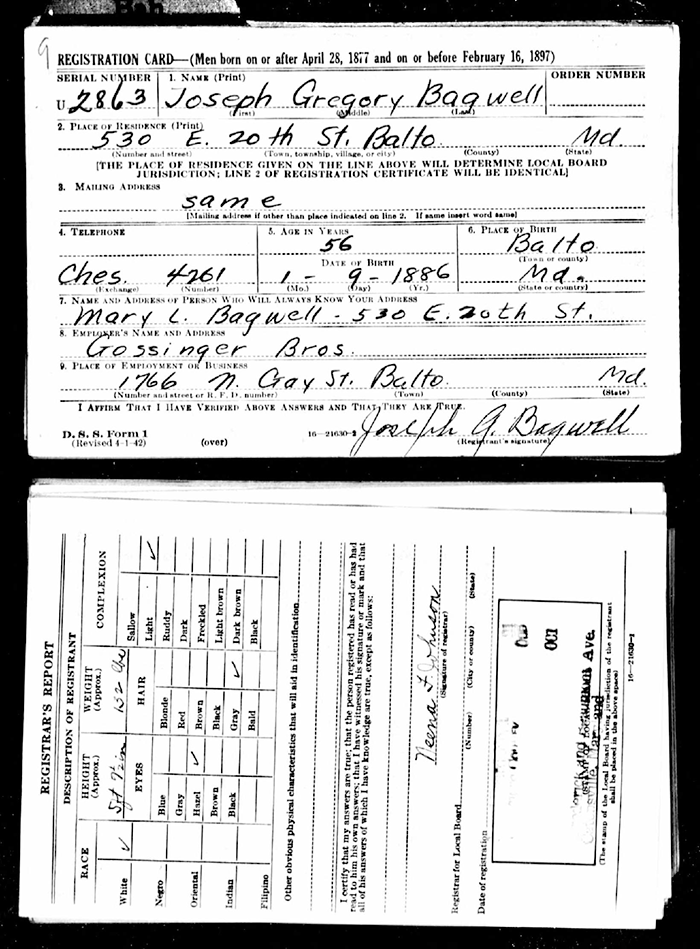 9
REGISTRATION CARD—(Men born on or after April 28, 1877 and on or before February 16, 1897)
SERIAL NUMBER 1. NAME (Print) ORDER NUMBER
U 2863 Joseph Gregory Bagwell
(First) (Middle) (Last)
2. PLACE OF RESIDENCE (Print)
530 E. 20th St. Balto. Md.
(Number and street) (Town, township, village, or city) (County) (State)
[THE PLACE OF RESIDENCE GIVEN ON THE LINE ABOVE WILL DETERMINE LOCAL BOARD
JURISDICTION; LINE 2 OF REGISTRATION CERTIFICATE WILL BE IDENTICAL]
3. MAILING ADDRESS
same
[Mailing address if other than place indicated on line 2. If same insert word same]
4. TELEPHONE 5. AGE IN YEARS 6. PLACE OF BIRTH
56 Balto
DATE OF BIRTH (Town or county)
Ches. 4261 1 - 9 - 1886 Md.
(Exchange) (Number) (Mo.) (Day) (Yr.) (State or country)
7. NAME AND ADDRESS OF PERSON WHO WILL ALWAYS KNOW YOUR ADDRESS
Mary L. Bagwell - 530 E. 20th St.
8. EMPLOYER'S NAME AND ADDRESS
Gossinger Bros.
9. PLACE OF EMPLOYMENT OR BUSINESS
1766 N. Gay St. Balto. Md.
(Number and street or R. F. D. number) (Town) (County) (State)
I AFFIRM THAT I HAVE VERIFIED ABOVE ANSWERS AND THAT THEY ARE TRUE.
D. S. S. Form 1
(Revised 4-1-42) (over) 16—21630-2 Joseph G. Bagwell
(Registrant's signature)
REGISTRAR'S REPORT
DESCRIPTION OF REGISTRANT
RACE HEIGHT (Approx.) WEIGHT (Approx.) COMPLEXION
5ft 152
White ✓ EYES HAIR Sallow
Light ✓
Negro Blue Blonde Ruddy
Gray Red Dark
Oriental Hazel ✓ Brown Freckled
Brown Black Light brown
Indian Black Gray ✓ Dark brown
Filipino Bald Black
Other obvious physical characteristics that will aid in identification
I certify that my answers are true; that the person registered has read or has had
read to him his own answers; that I have witnessed his signature or mark and that
all of his answers of which I have knowledge are true, except as follows:
Neena F. Johnson
(Signature of registrar)
Registrar for Local Board
(Number) (City or county) (State)
Date of registration
OCT
Ave.
(STAMP OF LOCAL BOARD)
(The stamp of the Local Board having jurisdiction of the registrant
shall be placed in the above space)
16—21630-1